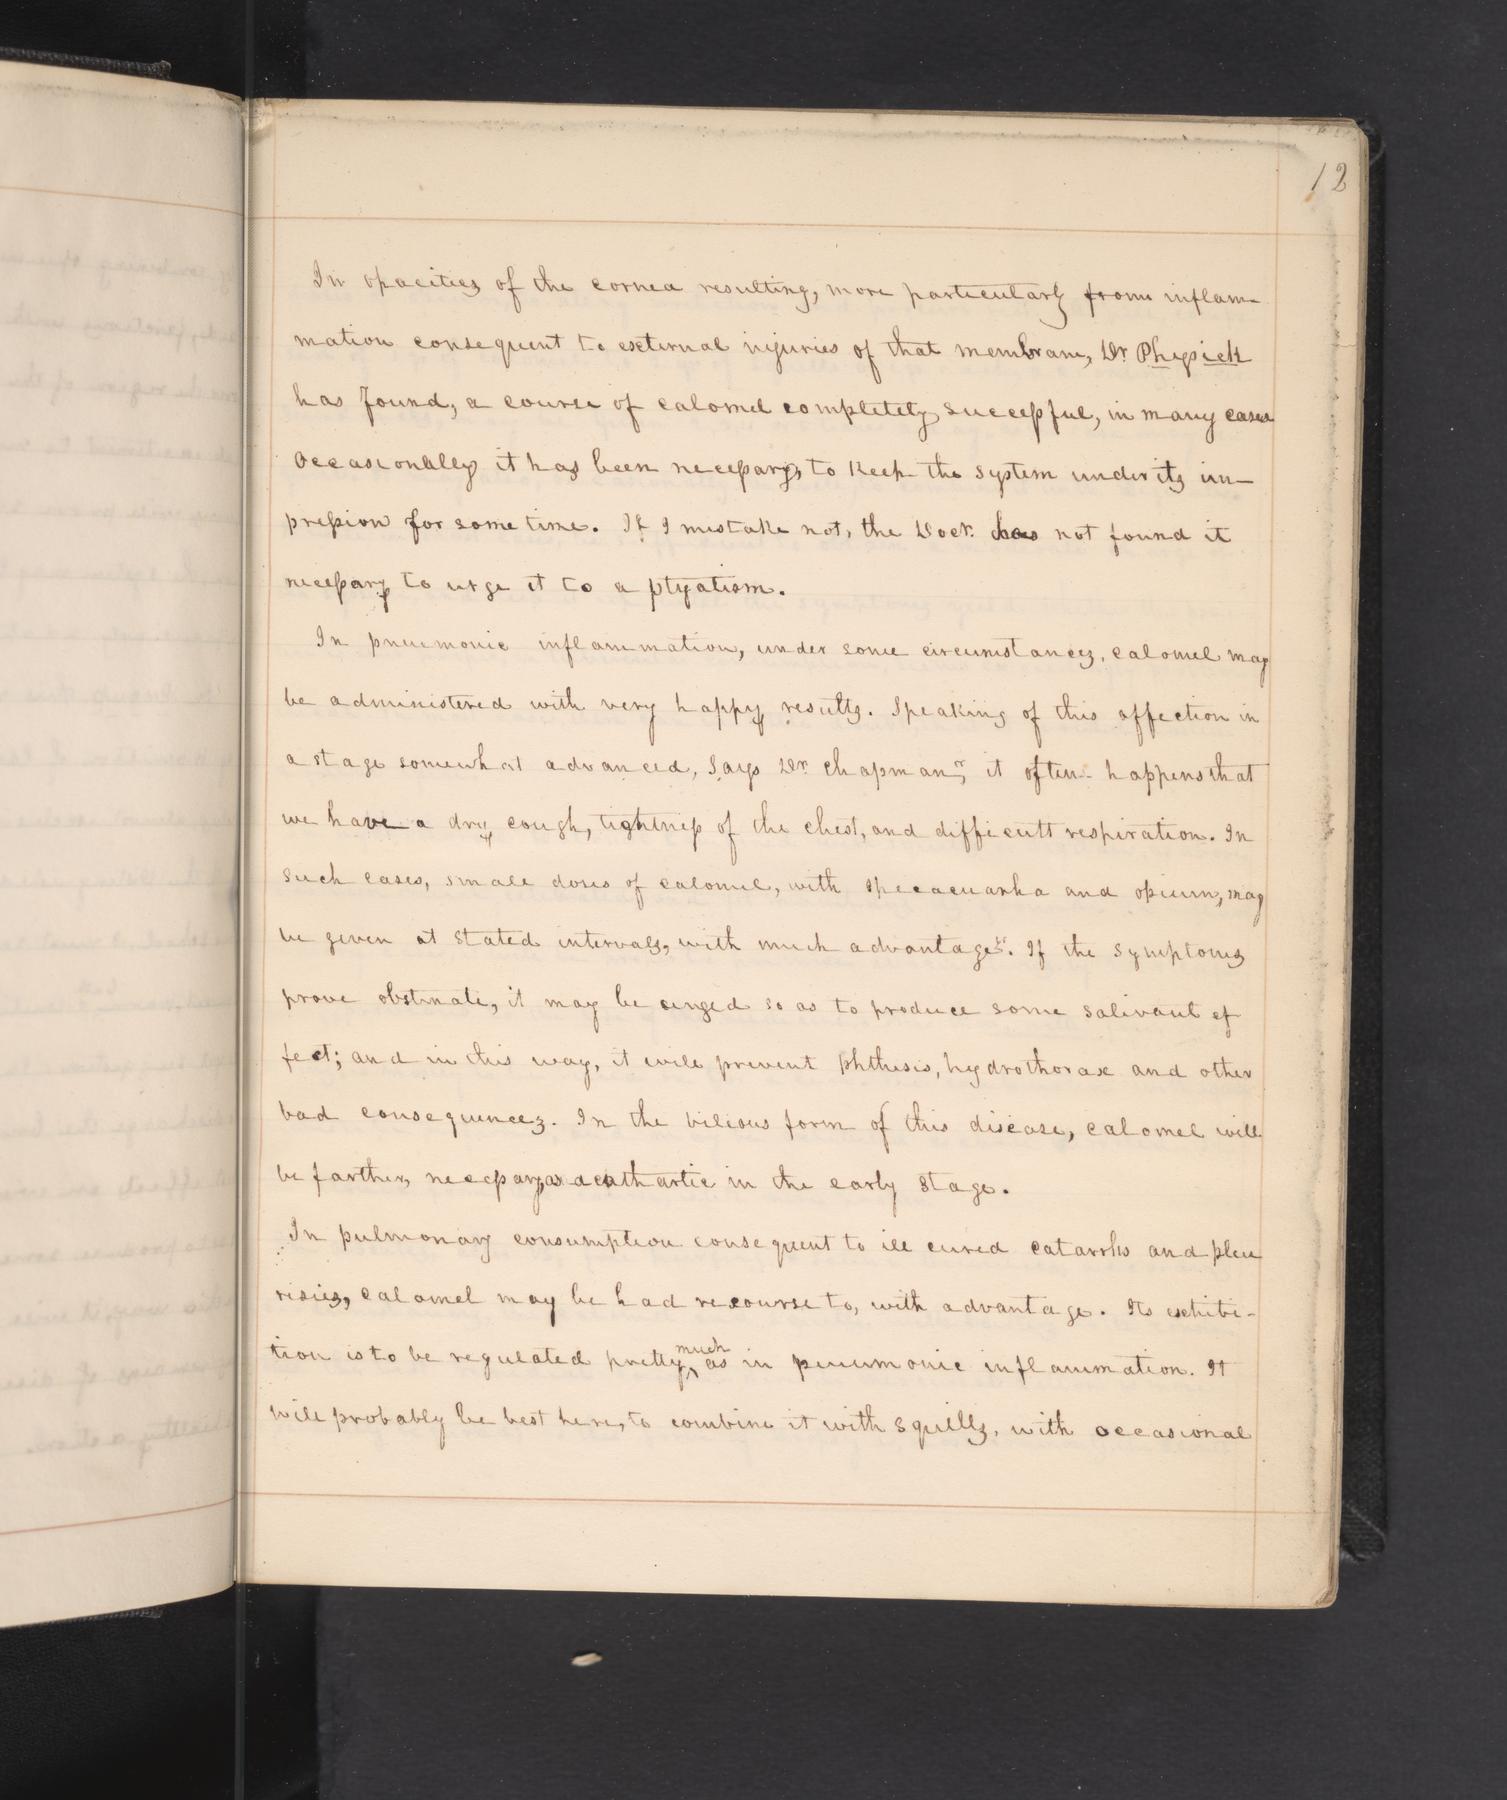 12
In opacities of the cornea resulting, more particularly from inflam-
mation consequent to external injuries of that membrane, Dr Physick
has found, a course of calomel completely successful, in many cases
Occasionally it has been necessary, to keep the system under its im-
pression for some time. If I mistake not, the Doct. has not found it
necessary to urge it to a ptyalism.
In pneumonic inflammation, under some circumstances, calomel may
be administered with very happy results. Speaking of this affection in
a stage somewhat advanced, says Dr. Chapman, "it often happens that
we have a dry cough, tightness of the chest, and difficult respiration. In
such cases, small doses of calomel, with ipecacuanha and opium, may
be given at stated intervals, with much advantage". If the symptoms
prove obstinate, it may be urged so as to produce some salivant ef
fect; and in this way, it will prevent phthisis, hydrothorax and other
bad consequences. In the bilious form of this disease, calomel will
be farther, necessary, as a cathartic in the early stage.
In pulmonary consumption consequent to ill cured catarrhs and pleu
risies, calomel may be had recourse to, with advantage. Its exhibi-
tion is to be regulated pretty much as in pneumonic inflammation. It
will probably be best here, to combine it with squills, with occasional